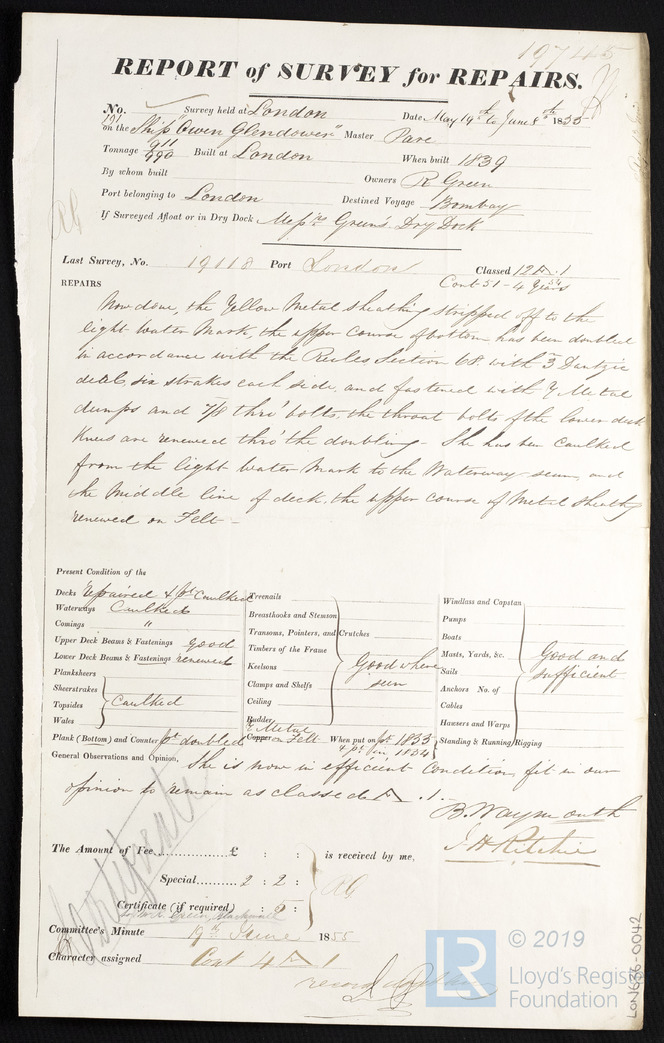 19745
REPORT of SURVEY for REPAIRS.
No. 191 Survey held at London Date May 19th to June 8th 1855
on the Ship "Owen Glendower" Master Pare
Tonnage 911 990 Built at London When built 1839
By whom built Owners R Green
Port belonging to London Destined Voyage Bombay
If Surveyed Afloat or in Dry Dock Messrs Green's Dry Dock
Last Survey, No. 19118 Port London Classed 12 A.1
Cont 51 - 4 Years
REPAIRS
Now done, the Yellow Metal sheathing stripped off to the
light Water Mark, the upper course of bottom has been doubled
in accordance with the Rules Section 68. with 3 Dantzic
deals, six strakes each side, and fastened with Y. Metal
dumps and 7/8 thro' bolts, the throat bolts of the lower deck
Knees are renewed thro' the doubling - She has been caulked
from the light Water Mark to the Waterway seam, and
the Middle line of deck, the upper course of Metal sheathg
renewed on Felt -
Present Condition of the
Decks Repaired & pt Caulked
Waterways Caulked
Comings "
Upper Deck Beams & Fastenings good
Lower Deck Beams & Fastenings renewed
Planksheers
Sheerstrakes
Topsides
Wales
Caulked
Plank (Bottom) and Counter pt doubled
Treenails
Breasthooks and Stemson
Transoms, Pointers, and Crutches
Timbers of the Frame
Keelsons
Clamps and Shelfs
Ceiling
Rudder
Good where
seen
Y. Metal
Copper on Felt When put on pt 1855
& pt in 1854
Windlass and Capstan
Pumps
Boats
Masts, Yards, &c.
Sails
Anchors No. of
Cables
Hawsers and Warps
Standing & Running Rigging
Good and
sufficient
General Observations and Opinion, She is now in efficient Condition, fit in our
opinion to remain as classed A.1.-
B. Waymouth
J H Ritchie
Certificate
The Amount of Fee £ : : is received by me,
Special 2 : 2 :
Certificate (if required) :
Green, Blackwall
Committee's Minute 19th June 1855
Character assigned Cont 4 A 1
LON636-0042
LR
© 2019
Lloyd's Register
Foundation